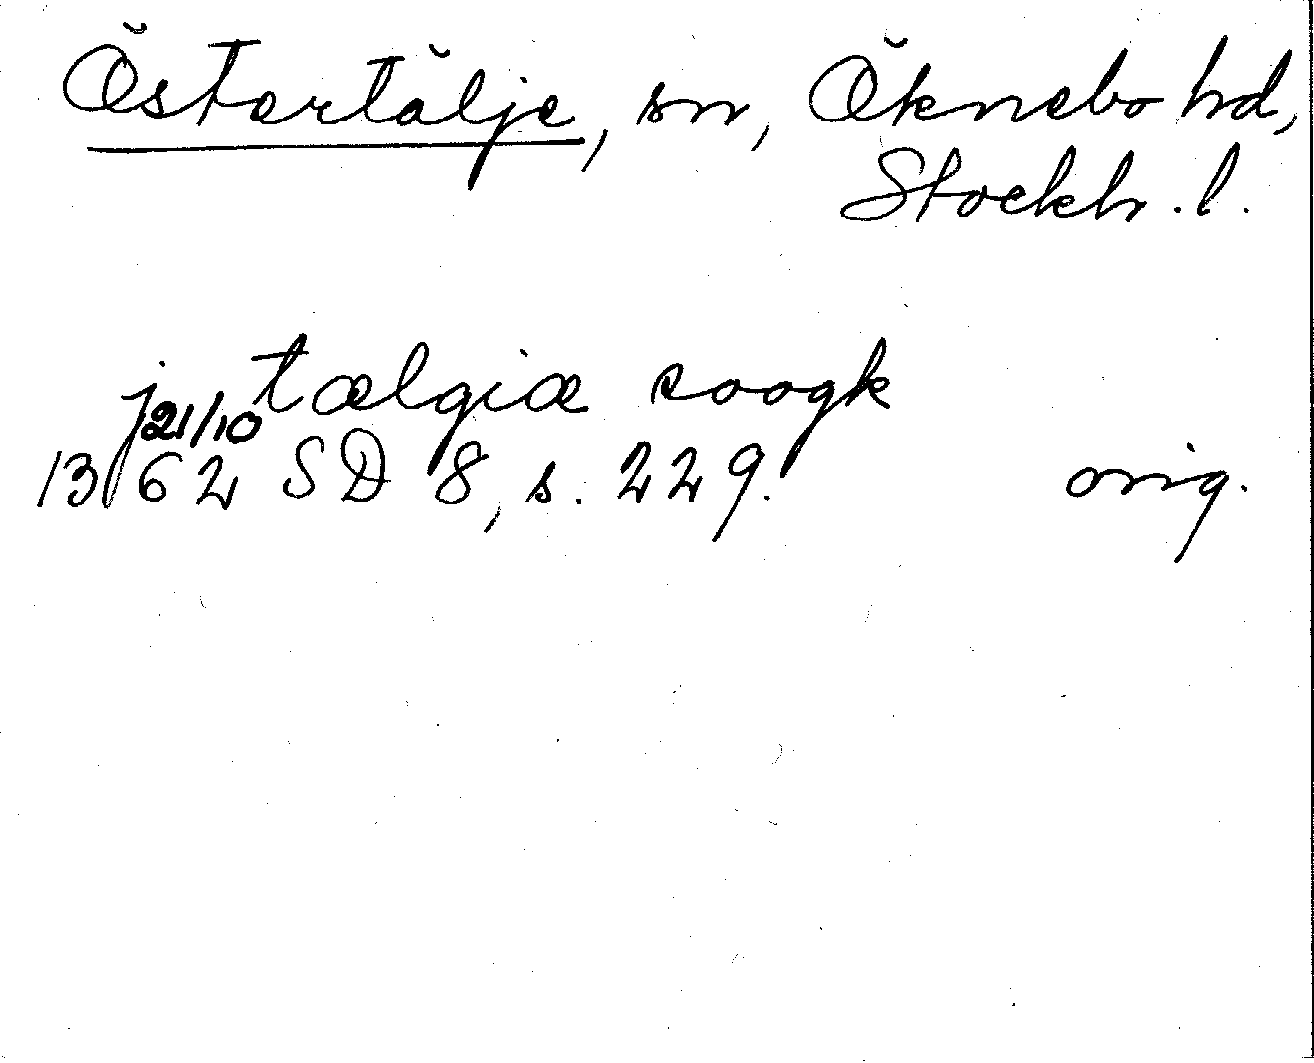 Östertälje, sn, Öknebo hd,
Stockh. l.
j tælgiæ soogk
21/10
1362 SD 8, s. 229. orig.